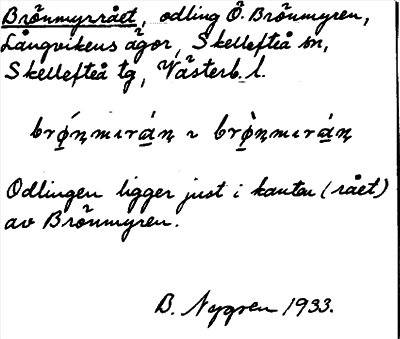 Brönmyrrået, odling Ö. Brönmyren,
Långvikens ägor, Skellefteå sn,
Skellefteå tg, Västerb. l.
Odlingen ligger just i kanten (rået)
av Brönmyren.
B. Nygren 1933.